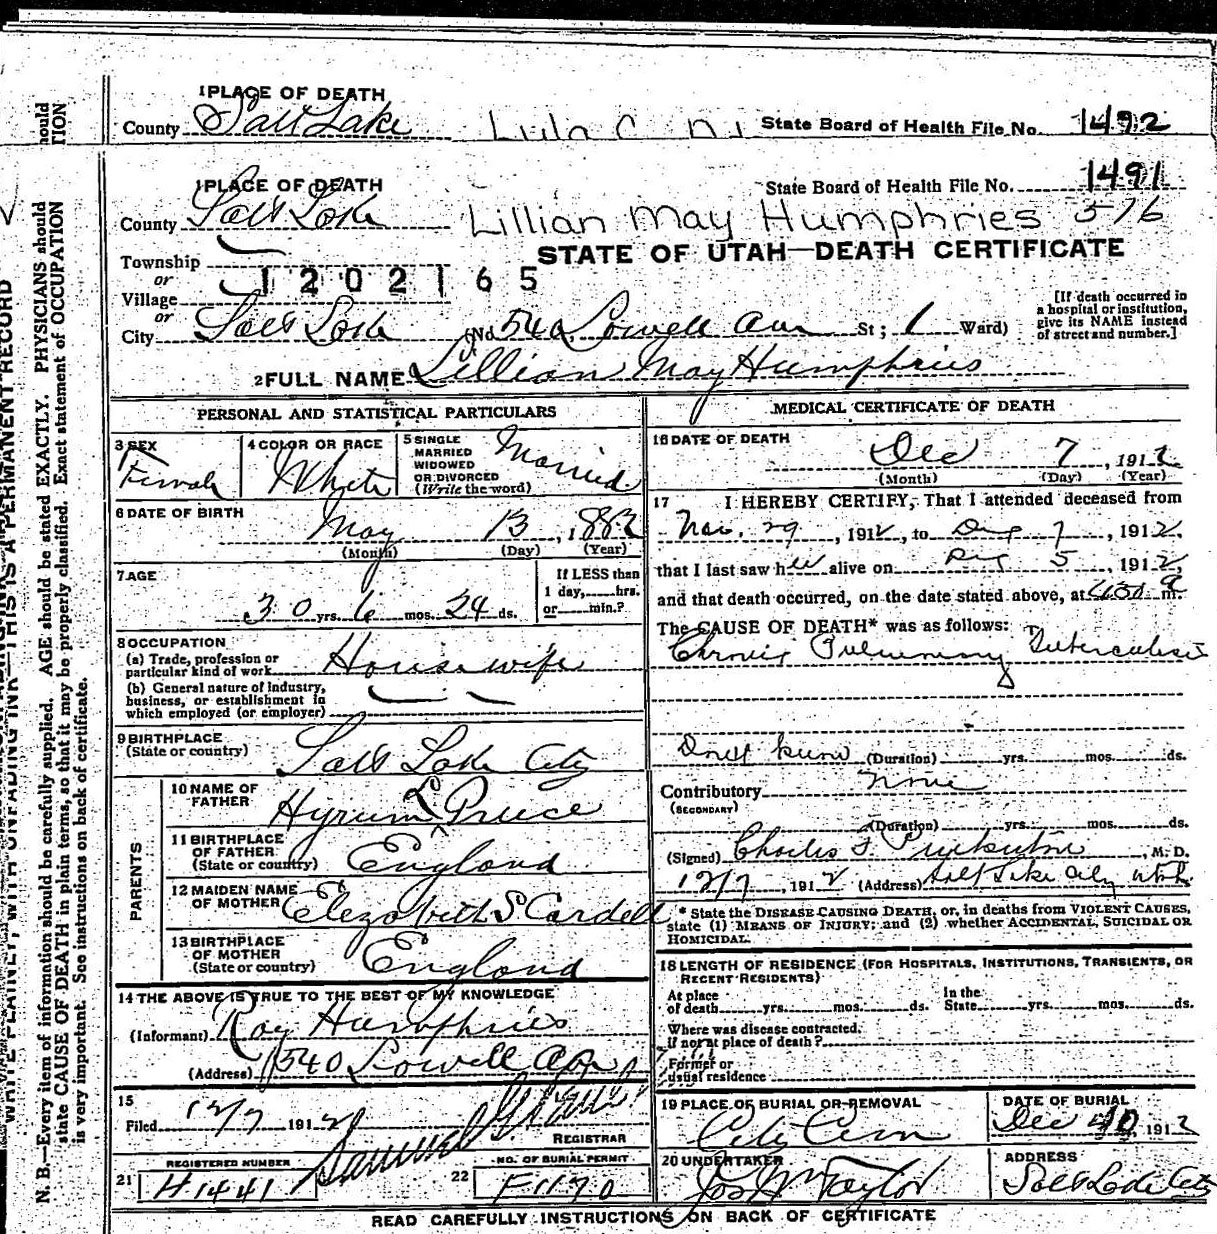 1 PLACE OF DEATH
County Salt Lake State Board of Health File No. 1492
1 PLACE OF DEATH
State Board of Health File No. 1491
County Salt Lake Lillian May Humphries 576
STATE OF UTAH—DEATH CERTIFICATE
Township
or
1202165
Village
or
City Salt Lake (No. 540 Lowell Ave St; 1 Ward)
[If death occurred in
a hospital or institution,
give its NAME instead
of street and number.]
2 FULL NAME Lillian May Humphries
PERSONAL AND STATISTICAL PARTICULARS
3 SEX
Female
4 COLOR OR RACE
White
5 SINGLE
MARRIED
WIDOWED
OR DIVORCED
(Write the word)
Married
6 DATE OF BIRTH
May 13, 1882
(Month) (Day) (Year)
7 AGE
30 yrs. 6 mos. 24 ds.
If LESS than
1 day, hrs.
or min.?
8 OCCUPATION
(a) Trade, profession or
particular kind of work Housewife
(b) General nature of industry,
business, or establishment in
which employed (or employer)
9 BIRTHPLACE
(State or country) Salt Lake City
PARENTS
10 NAME OF
FATHER Hyrum L
11 BIRTHPLACE
OF FATHER
(State or country) England
12 MAIDEN NAME
OF MOTHER Elezabeth S Cardell
13 BIRTHPLACE
OF MOTHER
(State or country) England
14 THE ABOVE IS TRUE TO THE BEST OF MY KNOWLEDGE
(Informant) Roy Humphries
(Address) 540 Lowell
15
Filed 12/7 1912
REGISTRAR
REGISTERED NUMBER
21 H1441
NO. OF BURIAL PERMIT
22 F1170
MEDICAL CERTIFICATE OF DEATH
16 DATE OF DEATH
Dec 7, 1912
(Month) (Day) (Year)
17 I HEREBY CERTIFY, That I attended deceased from
Nov. 29, 1912, to Dec 7, 1912,
that I last saw her alive on Dec 5, 1912,
and that death occurred, on the date stated above, at m.
The CAUSE OF DEATH* was as follows:
Chronic Pulmonary Tuberculosis
Don't know (Duration) yrs. mos. ds.
Contributory None
(SECONDARY)
(Duration) yrs. mos. ds.
(Signed) Charles F. , M. D.
12/7, 1912 (Address) Salt Lake City Utah
* State the DISEASE CAUSING DEATH, or, in deaths from VIOLENT CAUSES,
state (1) MEANS OF INJURY; and (2) whether ACCIDENTAL, SUICIDAL OR
HOMICIDAL.
18 LENGTH OF RESIDENCE (FOR HOSPITALS, INSTITUTIONS, TRANSIENTS, OR
RECENT RESIDENTS)
At place
of death yrs. mos. ds.
In the
State yrs. mos. ds.
Where was disease contracted.
if not at place of death?
Former or
usual residence
19 PLACE OF BURIAL OR REMOVAL
City Cem
DATE OF BURIAL
Dec 10, 1912
20 UNDERTAKER
Jos W Taylor
ADDRESS
Salt Lake City
READ CAREFULLY INSTRUCTIONS ON BACK OF CERTIFICATE
WRITE PLAINLY, WITH UNFADING INK—THIS IS A PERMANENT RECORD
N. B.—Every item of information should be carefully supplied. AGE should be stated EXACTLY. PHYSICIANS should
state CAUSE OF DEATH in plain terms, so that it may be properly classified. Exact statement of OCCUPATION
is very important. See instructions on back of certificate.